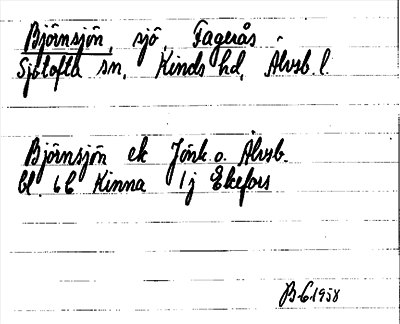 Björnsjön, sjö, Fagerås
Sjötofta sn, Kinds hd, Älvsb. l.
Björnsjön ek Jönk. o. Älvsb.
bl. 6C Kinna 1j Ekefors
BG 1958